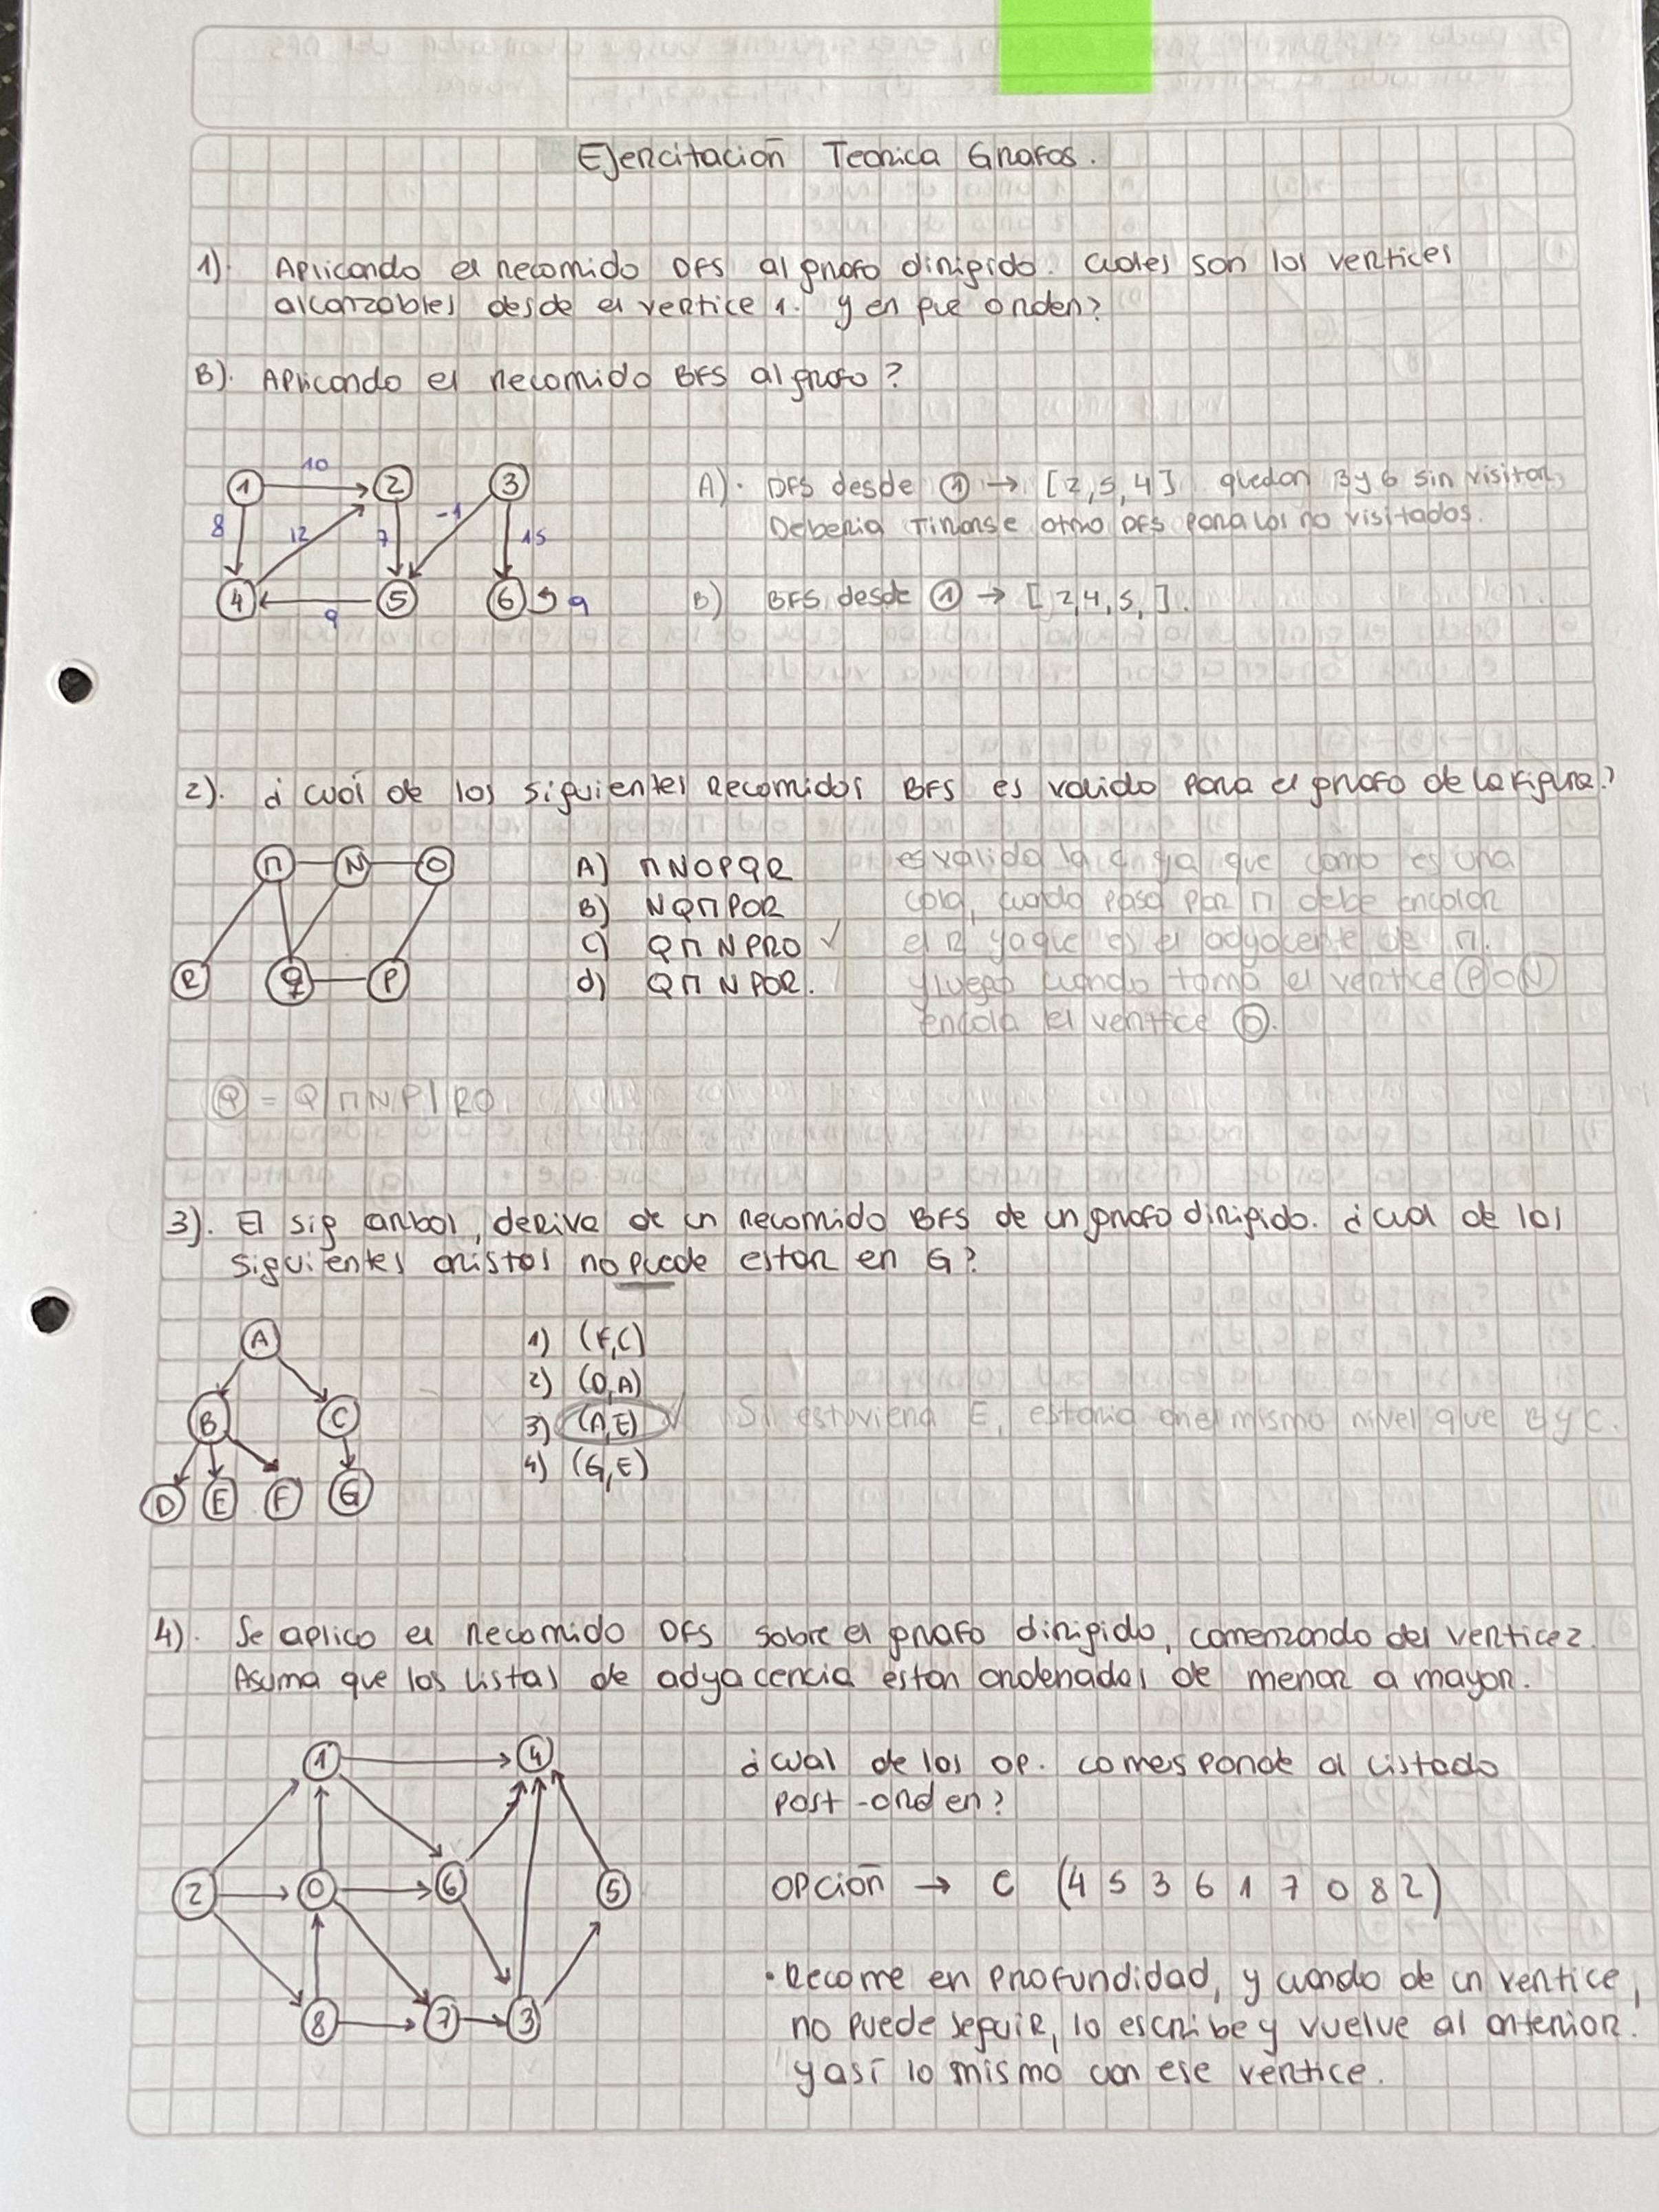 Ejercitación Teorica Grafos.
1). Aplicando el recorrido DFS al grafo dirigido. cuales son los vertices
alcanzables desde el vertice 1. y en que orden?
B). Aplicando el recorrido BFS al grafo?
10
1 2 3
8 12 7 -1 15
4 5 6 9
9
A). DFS desde 1 → [2,5,4] quedan 3 y 6 sin visitar,
Deberia Tirarse otro DFS para los no visitados.
B) BFS desde 1 → [2,4,5,].
2). ¿cual de los siguientes Recorridos BFS es valido para el grafo de la figura?
M N O
R Q P
A) MNOPQR
B) NQMPOR
C) QMNPRO ✓
d) QMNPOR.
es valida la c ya que como es una
cola, cuando pasa por M debe encolar
el R ya que es el adyacente de M.
y luego cuando toma el vertice P o N
encola el vertice O.
Q = Q|MNP|RO
3). El sig arbol, deriva de un recorrido BFS de un grafo dirigido. ¿cual de los
siguientes aristas no puede estar en G?
A
B C
D E F G
1) (F,C)
2) (D,A)
3) (A,E) ✓ Si estuviera E, estaria en el mismo nivel que B y C.
4) (G,E)
4). Se aplico el recorrido DFS sobre el grafo dirigido, comenzando del vertice 2.
Asuma que las listas de adyacencia estan ordenadas de menor a mayor.
1 4
2 0 6 5
8 7 3
¿cual de los op. corresponde al listado
post-orden?
OPCIÓN → C (4 5 3 6 1 7 0 8 2)
• Recorre en profundidad, y cuando de un vertice,
no puede seguir, lo escribe y vuelve al anterior.
y así lo mismo con ese vertice.